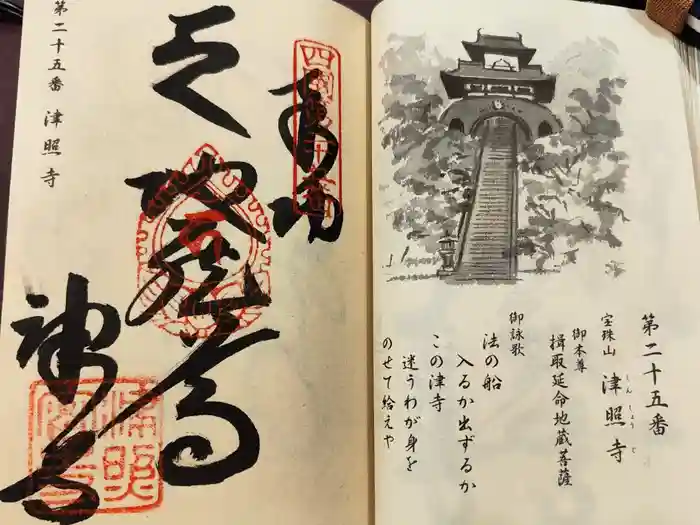 第二十五番
宝珠山 津照寺
しんしょうじ
御本尊
楫取延命地蔵菩薩
御詠歌
法の船
入るか出ずるか
この津寺
迷うわが身を
のせて給えや
奉納
地蔵尊
津寺
第二十五番 津照寺